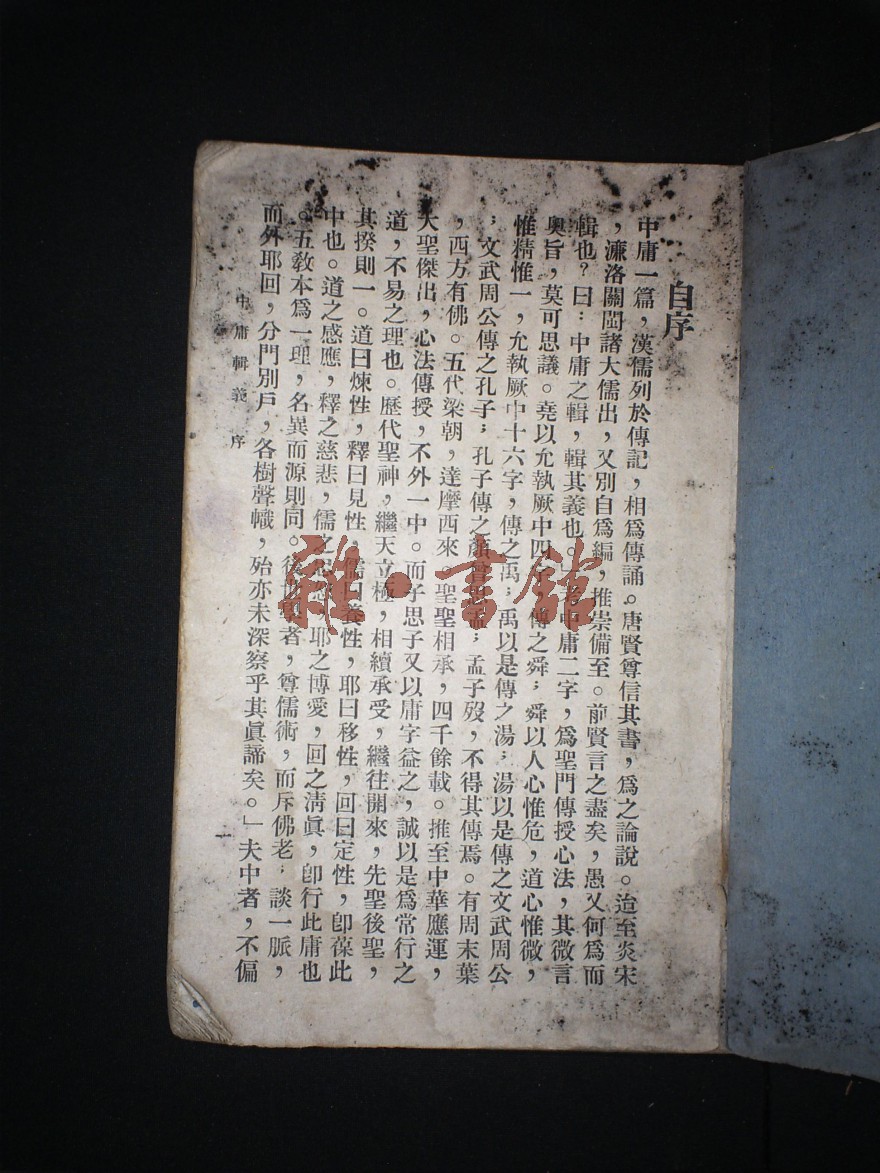 自序
中庸一篇，漢儒列於傳記，相爲傳誦。唐賢尊信其書，爲之論說。迨至炎宋
，濂洛關閩諸大儒出，又別自爲編，推崇備至。前賢言之盡矣，愚又何爲而
輯也？曰：中庸之輯，輯其義也。中庸二字，爲聖門傳授心法，其微言
奧旨，莫可思議。堯以允執厥中四字，傳之舜；舜以人心惟危，道心惟微，
惟精惟一，允執厥中十六字，傳之禹；禹以是傳之湯；湯以是傳之文武周公
；文武周公傳之孔子；孔子傳之顏曾思孟；孟子歿，不得其傳焉。有周末葉
，西方有佛。五代梁朝，達摩西來，聖聖相承，四千餘載。推至中華應運，
大聖傑出，心法傳授，不外一中。而子思子又以庸字益之，誠以是爲常行之
道，不易之理也。歷代聖神，繼天立極，相續承受，繼往開來，先聖後聖，
其揆則一。道曰煉性，釋曰見性，儒曰養性，耶曰移性，回曰定性，卽葆此
中也。道之感應，釋之慈悲，儒之忠恕，耶之博愛，回之淸眞，卽行此庸也
。五敎本爲一理，名異而源則同。後世學者，尊儒術，而斥佛老；談一脈，
而外耶回，分門別戶，各樹聲幟，殆亦未深察乎其眞諦矣。」夫中者，不偏
中庸輯義 序
一
雜·書館